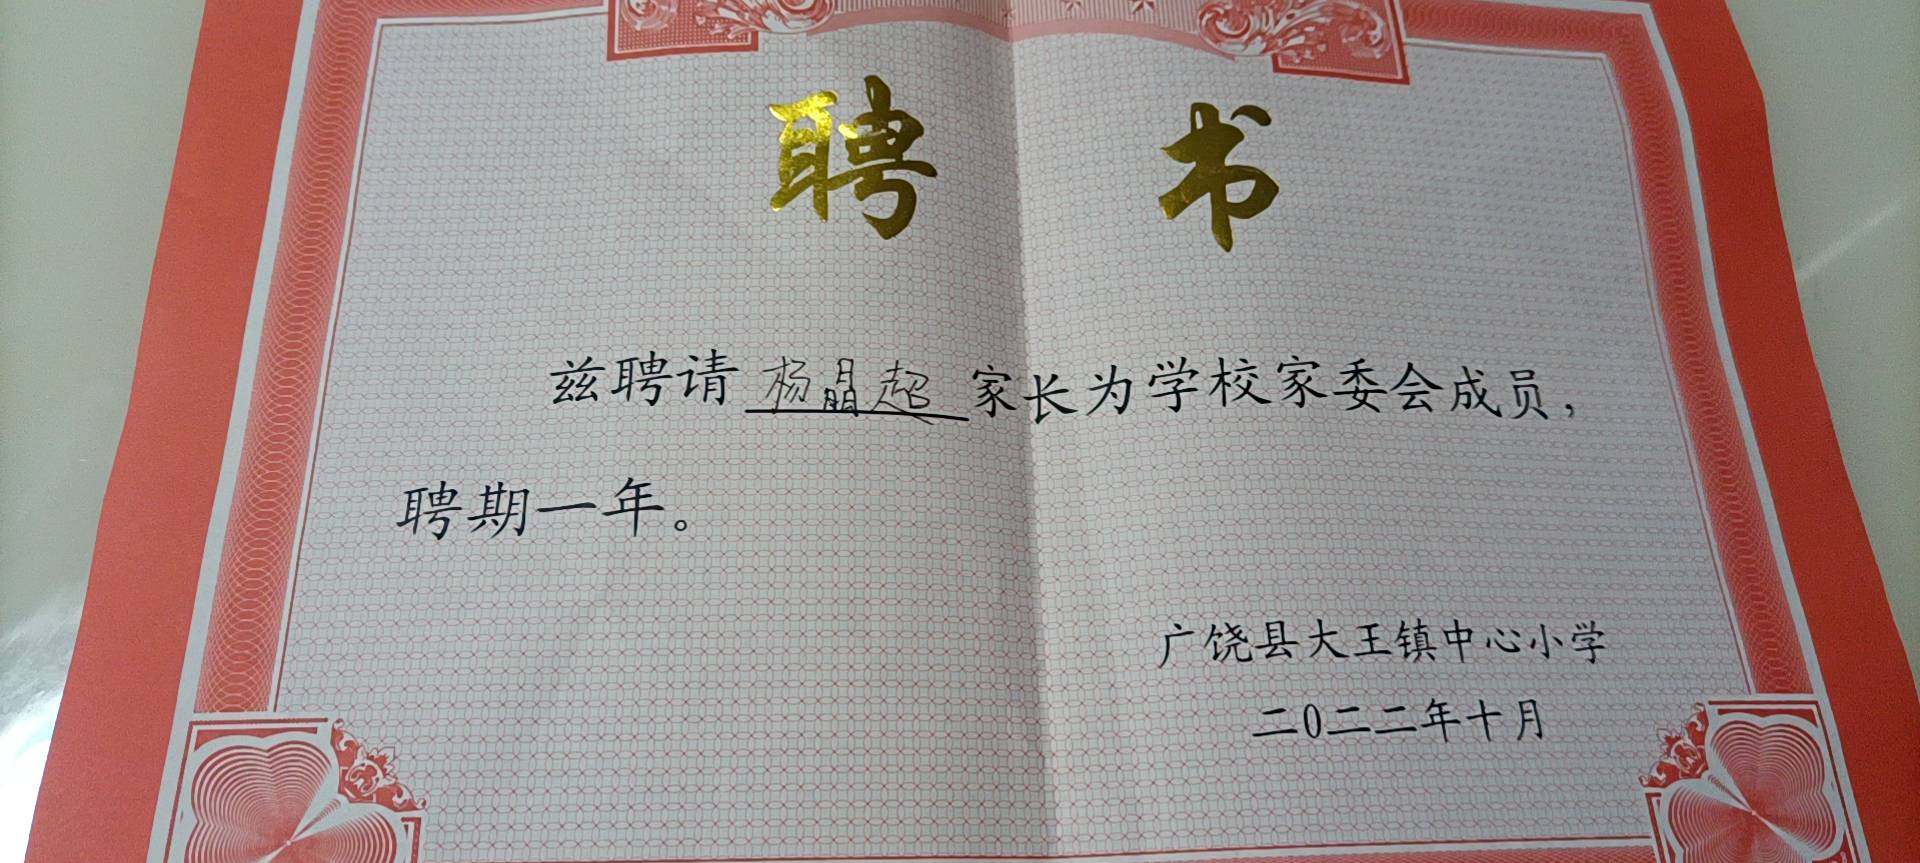 聘书
兹聘请杨晶超家长为学校家委会成员，
聘期一年。
广饶县大王镇中心小学
二〇二二年十月